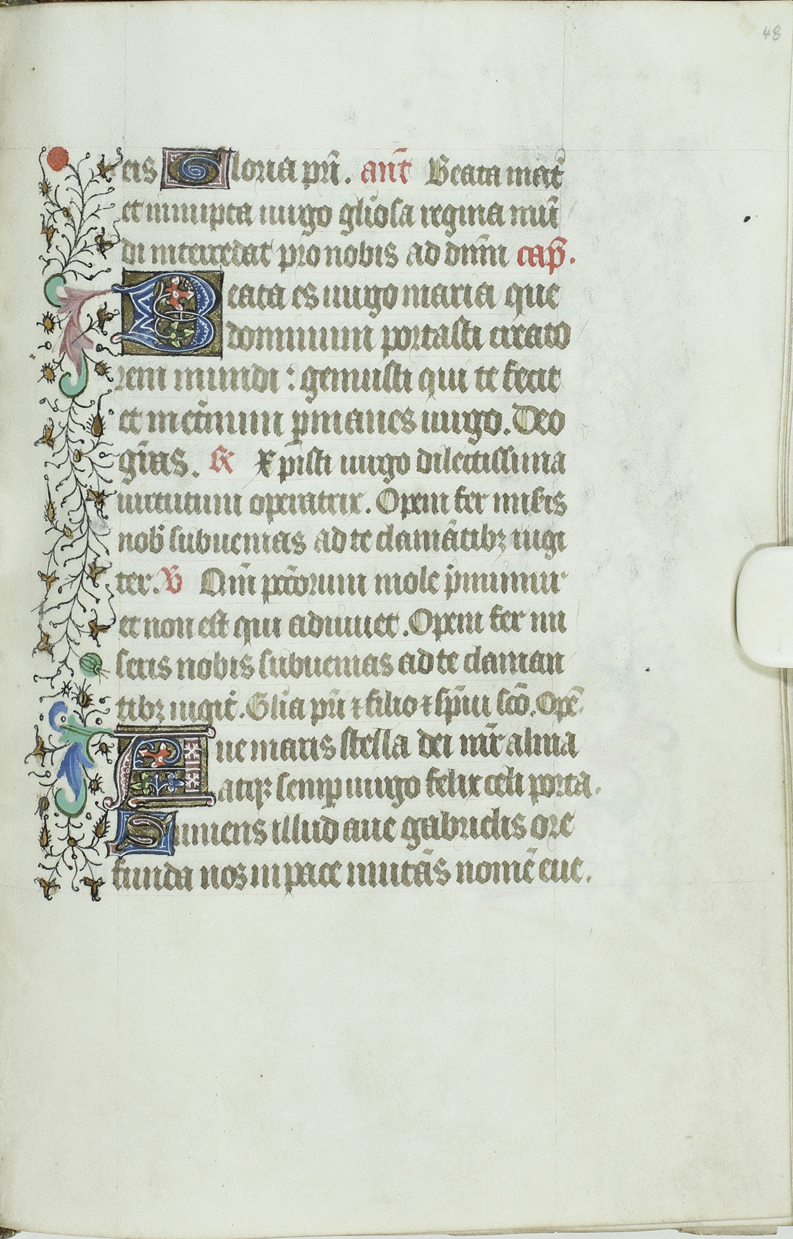 48
eis Gloria pri̅. an̅t Beata mat̅
et innupta uirgo gl̅iosa regina mu̅
di intercedat pro nobis ad dn̅m cap̅.
Beata es uirgo maria que
dominum portasti creato
rem mundi : genuisti qui te fecit
et in et̅num p̅manes uirgo. Deo
gr̅as. ℟ Xp̅isti uirgo dilectissima
uirtutum operatrix. Opem fer miseris
nob̅ subuenias ad te clama̅tibꝫ iugi
ter. ℣ Qm̅ pc̅corum mole p̅mimur
et non est qui adiuuet. Opem fer mi
seris nobis subuenias ad te claman
tibꝫ iugit̅. Gl̅ia pri̅ ⁊ filio ⁊ sp̅ui sc̅o. Ope̅.
Aue maris stella dei mr̅ alma
atqꝫ semp̅ uirgo felix celi porta.
Sumens illud aue gabrielis ore
funda nos in pace muta̅s nome̅ eue.